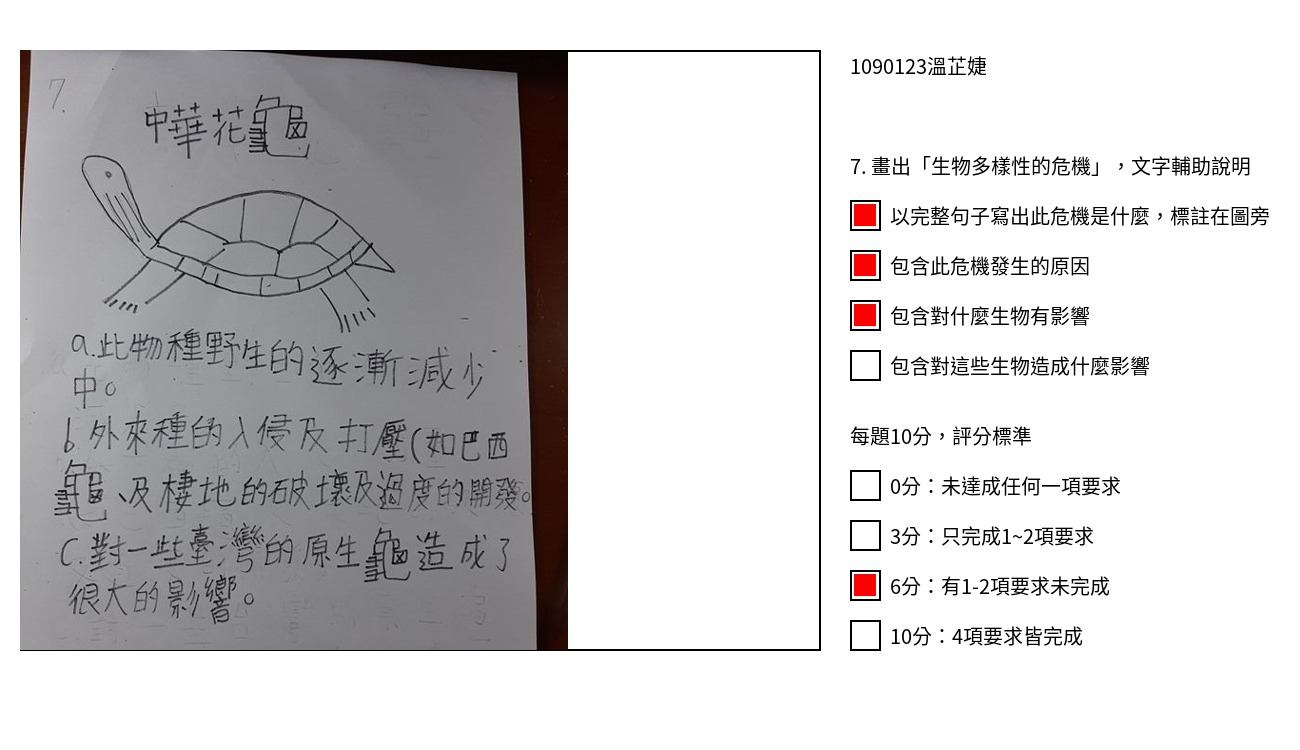 7.
中華花龜
a.此物種野生的逐漸減少
中。
b.外來種的入侵及打壓(如巴西
龜、及棲地的破壞及過度的開發。
C.對一些臺灣的原生龜造成了
很大的影響。
1090123溫芷婕
7. 畫出「生物多樣性的危機」，文字輔助說明
以完整句子寫出此危機是什麼，標註在圖旁
包含此危機發生的原因
包含對什麼生物有影響
包含對這些生物造成什麼影響
每題10分，評分標準
0分：未達成任何一項要求
3分：只完成1~2項要求
6分：有1-2項要求未完成
10分：4項要求皆完成